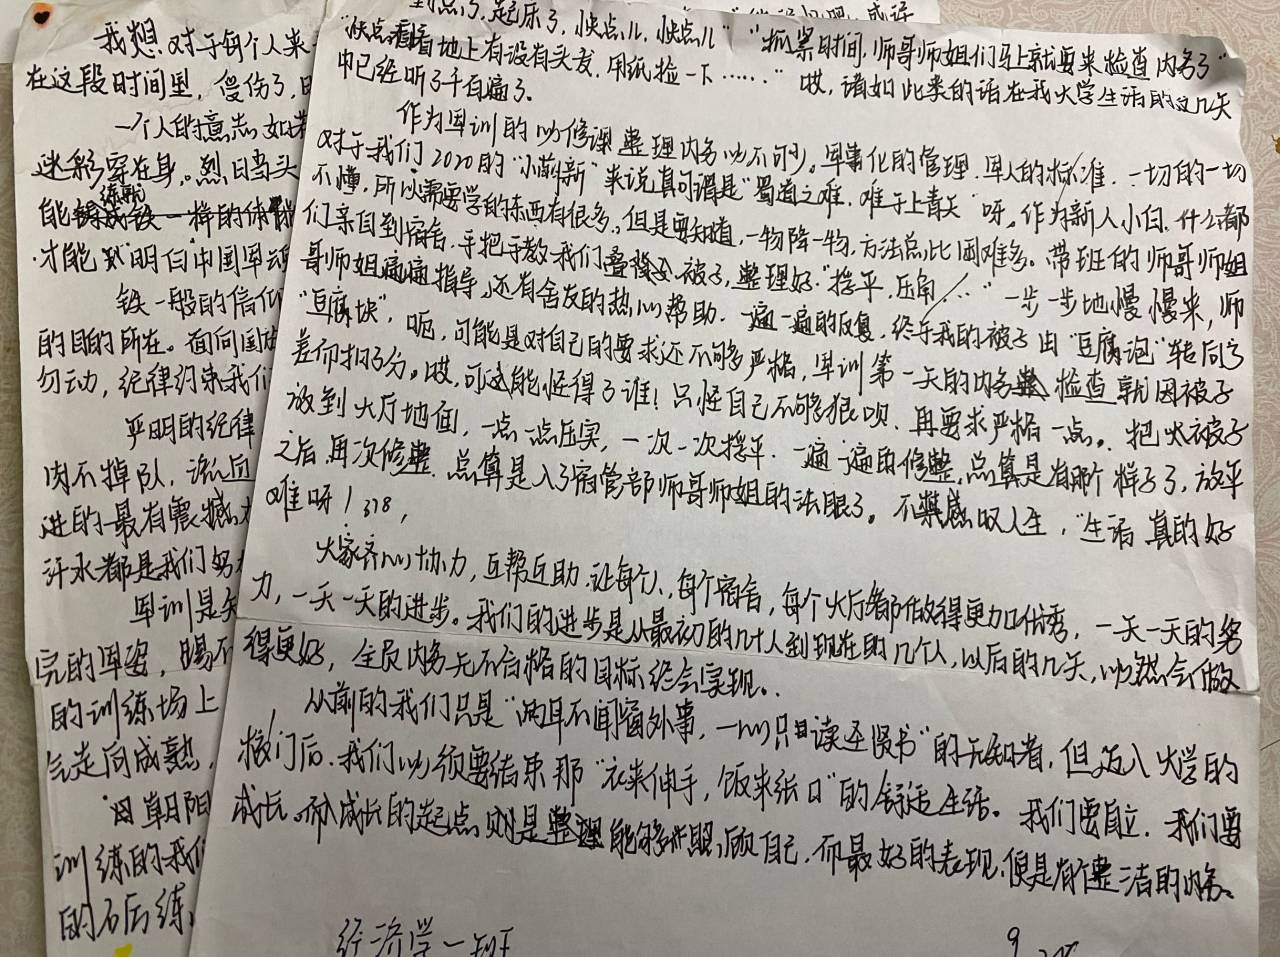 到点了,起床了,快点儿,快点儿" "抓紧时间,师哥师姐们马上就要来检查内务了"
"快点看看地上有没有头发,用纸捡一下……" 哎,诸如此类的话在我大学生活的这几天
中已经听了千百遍了.
作为军训的必修课整理内务必不可少。军事化的管理.军人的标准.一切的一切
对于我们2020的"小萌新"来说真可谓是"蜀道之难.难于上青天"呀,作为新人小白.什么都
不懂,所以需要学的东西有很多。但是要知道,一物降一物,方法总比困难多。带班的师哥师姐
们亲自到宿舍,手把手教我们叠被子,整理好."捋平,压角……"一步一步地慢慢来,师
哥师姐遍遍指导,还有舍友的热心帮助.一遍一遍的反复,终于我的被子由"豆腐泡"转向了
"豆腐块",呃,可能是对自己的要求还不够严格,军训第一天的内务检查就因被子
差而扣了分。哎,可这能怪得了谁!只怪自己不够狠呗,再要求严格一点。把大被子
放到大厅地面,一点一点压实,一次一次捋平.一遍一遍的修整,总算是有那个样子了,放平
之后.再次修整.总算是入了宿管部师哥师姐的法眼了。不禁感叹人生,"生活真的好
难呀!
大家齐心协力,互帮互助.让每个人,每个宿舍,每个大厅都做得更加优秀,一天一天的努
力,一天一天的进步。我们的进步是从最初的几十人到现在的几个人,以后的几天,必然会做
得更好,全员内务无不合格的目标终会实现。
从前的我们只是"两耳不闻窗外事,一心只读圣贤书"的无知者,但迈入大学的
校门后.我们必须要结束那"衣来伸手,饭来张口"的舒适生活。我们要自立.我们要
成长.而成长的起点则是整理能够照顾自己.而最好的表现,便是有个整洁的内务。
经济学一班
我想对于每个人来
在这段时间里,
一个人的意志如若
迷彩穿在身。烈日当头
能练就一样的
才能明白中国军魂
铁一般的信仰
的目的所在。面向国旗
勿动,纪律约束我们
严明的纪律
肉不掉队,
进的最有震撼
汗水都是我们努力
军训是
的军姿,
的训练场上
气走向成熟,
训练的我们